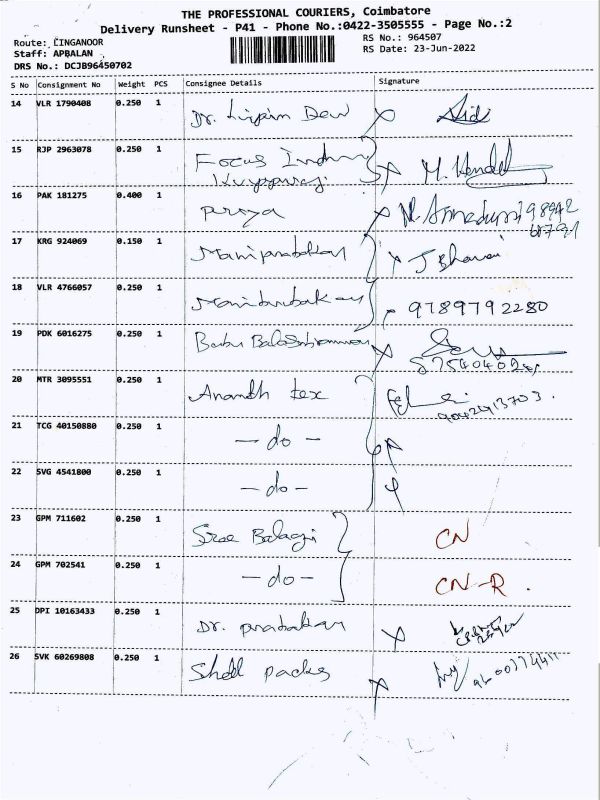 THE PROFESSIONAL COURIERS, Coimbatore
Delivery Runsheet - P41 - Phone No.:0422-3505555 - Page No.:2
Route: LINGANOOR
RS No.: 964507
Staff: APBALAN
RS Date: 23-Jun-2022
DRS No.: DCJB96450702
S No Consignment No Weight PCS Consignee Details Signature
14 VLR 1790408 0.250 1 Dr.
15 RJP 2963078 0.250 1 Focus
16 PAK 181275 0.400 1
17 KRG 924069 0.150 1 Maniprabakar J Bhavai
18 VLR 4766057 0.250 1 9789792280
19 PDK 6016275 0.250 1
20 MTR 3095551 0.250 1 Anandh tex
21 TCG 40150880 0.250 1 - do -
22 SVG 4541800 0.250 1 - do -
23 GPM 711602 0.250 1 Sree Balagi CN
24 GPM 702541 0.250 1 - do - CN-R.
25 DPI 10163433 0.250 1 Dr. prabakar
26 SVK 60269808 0.250 1 Shell packs